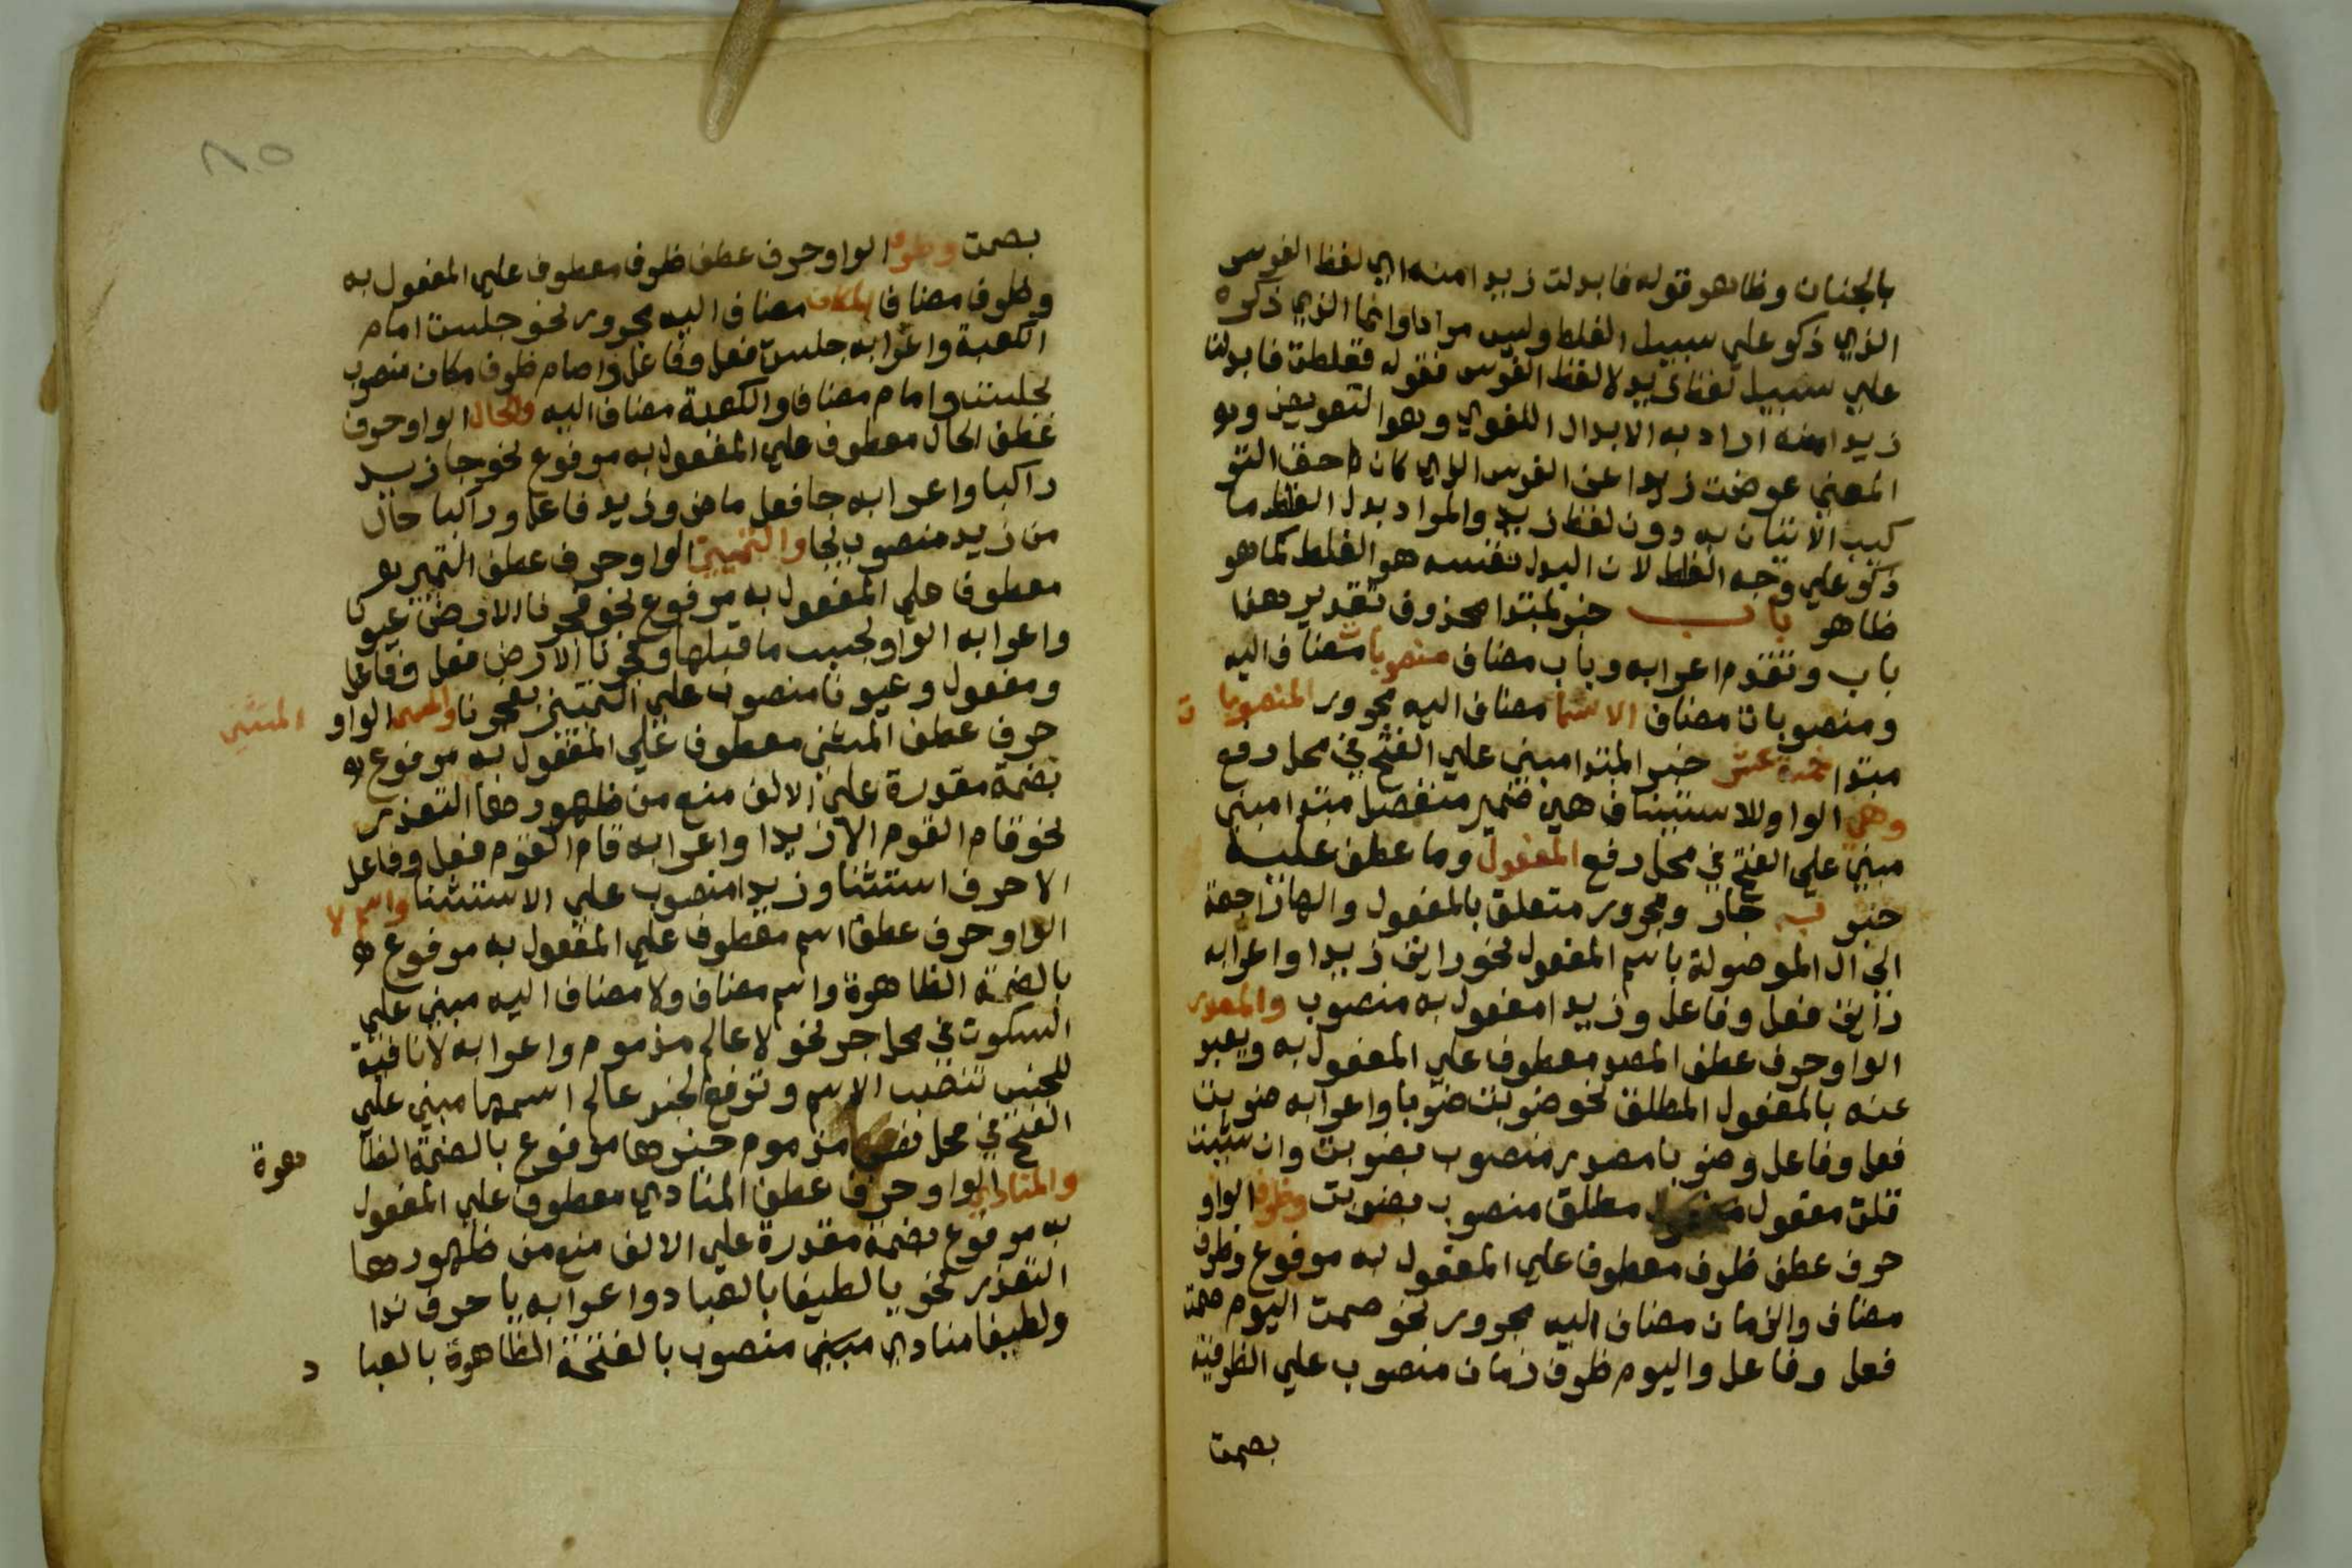 بالجنان وظاهر قوله فابدلت زيدا منه اي لفظ الفرس
الذي ذكر علي سبيل الغلط وليس مرادا وانما الذي ذكره
علي سبيل لفظ زيد لا لفظ الفرس فقوله فغلطت فابدلت
زيدا منه اراد به الابدال اللغوي وهو التعويض وهو
المعني عوضت زيدا عن الفرس الذي كان حق التر
كيب الاتيان به دون لفظ زيد والمراد بدل الغلط ما
ذكر علي وجه الغلط لا ن البدل نفسه هو الغلط كما هو
ظاهر باب خبر لمبتدا محذوف تقدير هذا
باب وتقدم اعرابه وباب مضاف منصوبات مضاف اليه
ومنصوبات مضاف الاسما مضاف اليه مجرور المنصوبا ت
مبتدا خمسة عشر خبر المبتدا مبني علي الفتح في محل رفع
وهي الواو للاستيناف هي ضمير منفصل مبتدا مبني
مبني علي الفتح في محل رفع المفعول وما عطف عليه
خبر به جار ومجرور متعلق بالمفعول والها راجعة
الي ال الموصولة باسم المفعول نحو رايت زيدا واعرابه
رايت فعل وفاعل وزيدا مفعول به منصوب والمصدر
الواو حرف عطف المصدر معطوف علي المفعول به ويعبر
عنه بالمفعول المطلق نحو ضربت ضربا واعرابه ضربت
فعل وفاعل وضربا مصدر منصوب بضربت وان شيت
قلت مفعول مطلق منصوب بضربت وظرف الواو
حرف عطف ظرف معطوف علي المفعول به مرفوع وظرف
مضاف والزمان مضاف اليه مجرور نحو صمت اليوم صمت
فعل وفاعل واليوم ظرف زمان منصوب علي الظرفية
بصمت
٨٥
بصمت وظرف الواو حرف عطف ظرف معطوف علي المفعول به
وظرف مضاف المكان مضاف اليه مجرور نحو جلست امام
الكعبة واعرابه جلست فعل وفاعل وامام ظرف مكان منصوب
بجلست وامام مضاف والكعبة مضاف اليه والحال الواو حرف
عطف الحال معطوف علي المفعول به مرفوع نحو جا زيد
راكبا واعرابه جا فعل ماض وزيد فاعل وراكبا حال
من زيد منصوب بجا والتمييز الواو حرف عطف التمييز
معطوف علي المفعول به مرفوع نحو فجرنا الارض عيونا
واعرابه الواو بحسب ما قبلها وفجرنا الارض فعل وفاعل
ومفعول وعيونا منصوب علي التمييز بفجرنا والمستثني الواو المستثني
حرف عطف المستثني معطوف علي المفعول به مرفوع
بضمة مقدرة علي الالف منع من ظهورها التعذر
نحو قام القوم الا زيدا واعرابه قام القوم فعل وفاعل
الا حرف استثنا وزيدا منصوب علي الاستثنا واسم لا
الواو حرف عطف اسم معطوف علي المفعول به مرفوع
بالضمة الظاهرة واسم مضاف ولا مضاف اليه مبني علي
السكون في محل جر نحو لا عالم مذموم واعرابه لا نافية
للجنس تنصب الاسم وترفع الخبر عالم اسمها مبني علي
الفتح في محل نصب مذموم خبرها مرفوع بالضمة الظا هرة
والمنادي الواو حرف عطف المنادي معطوف علي المفعول
به مرفوع بضمة مقدرة علي الالف منع من ظهورها
التعذر نحو يا لطيفا بالعباد واعرابه يا حرف ندا
ولطيفا منادي مبني منصوب بالفتحة الظاهرة بالعبا د